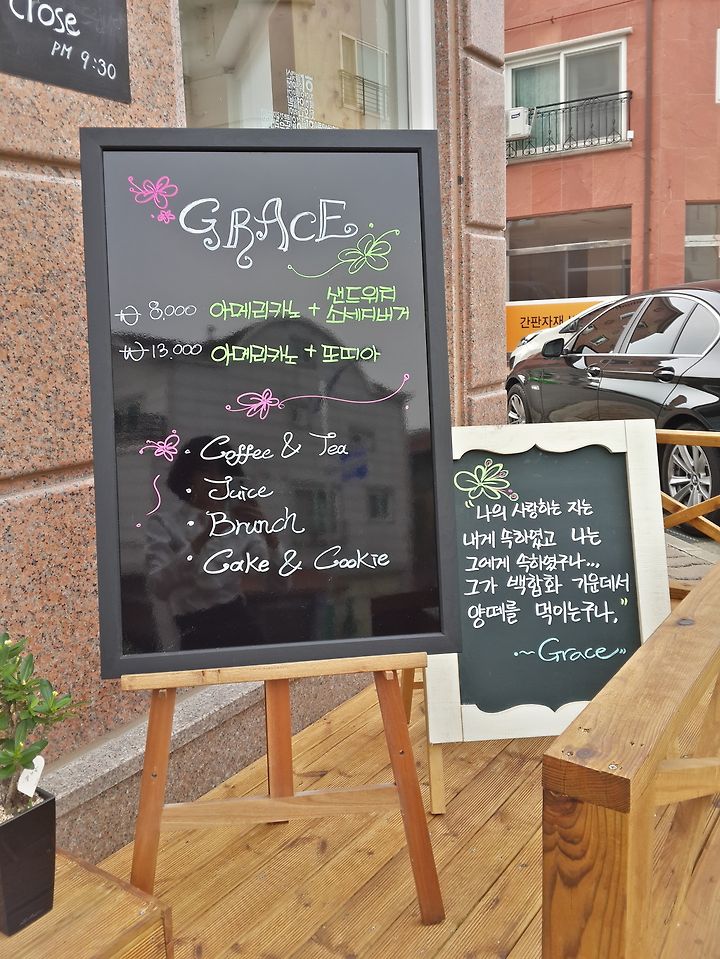 Close
PM 9:30
GRACE
₩ 8,000 아메리카노 + 샌드위치
소세지버거
₩ 13,000 아메리카노 + 또띠아
· Coffee & Tea
· Juice
· Brunch
· Cake & Cookie
"나의 사랑하는 자는
내게 속하였고 나는
그에게 속하였구나...
그가 백합화 가운데서
양떼를 먹이는구나."
·~Grace
간판자재